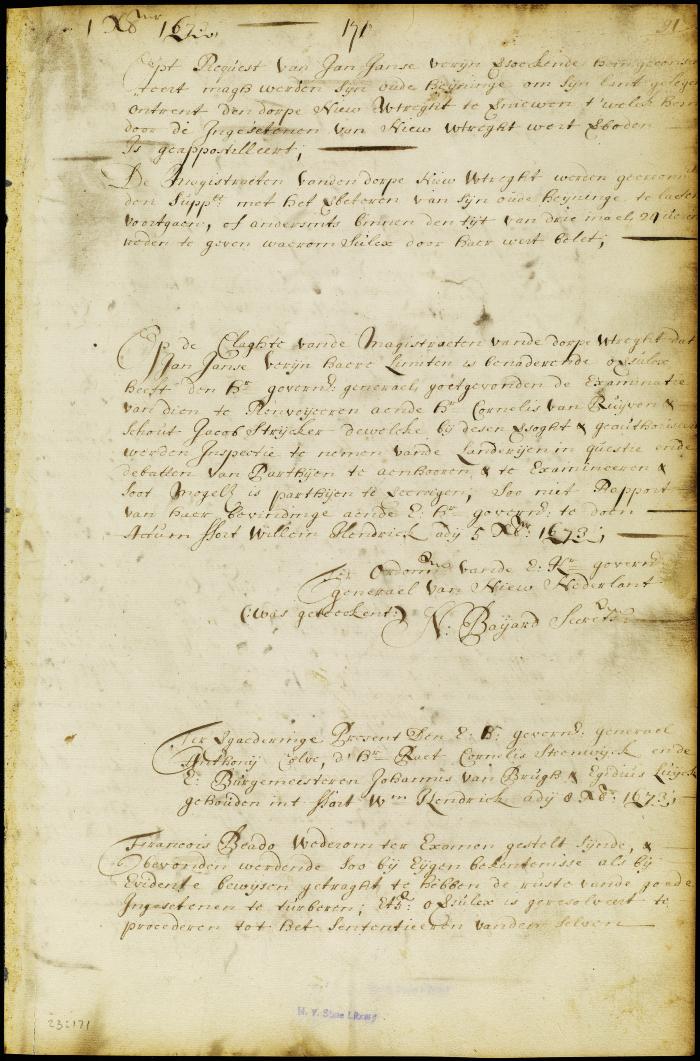 1 Xber 1673. 171 91
Opt Request van Jan Janse veryn versoeckende
teert magh werden syn oude heyninge om syn lant gelegen
ontrent den dorpe Niew Wtreght te verniewen t'welck hem
door de Ingesetenen van Niew Wtreght wert verboden
Is geappostilleert;
De Magistraeten vanden dorpe Niew Wtreght werden geordonneert
den Suppt: met het verbeteren van syn oude heyninge te laeten
voortgaen, of andersints binnen den tyt van drie mael 24 uren
reden te geven waerom sulcx door haer wert belet;
Op de Claghte vande Magistraeten vande dorpe Wtreght dat
Jan Janse veryn haere Limiten is benaderende oversulcx
heeft den hr governr: generael goetgevonden de Examinatie
van dien te Renvoyeeren aende hr Cornelis van Ruyven &
Schout Jacob Strycker dewelcke by desen versoght & geauthoriseert
werden Inspectie te nemen vande Landeryen in questie ende
debatten van Parthyen te aenhooren & te Examineeren &
soot mogelk is parthyen te vereenigen, Soo niet Rapport
van haer bevindinge aende E: hr governr: te doen
Actum ffort Willem Hendrick ady 5 Xbr: 1673;
Ter Ordonn: vande E: Hr governr:
generael van Niew Nederlant
(:was geteeckent:) N: Bayard Secrets
Ter vergaederinge Present Den E: Hr: governr: generael
Anthony Colve, d' hr Raet Cornelis Steenwyck ende
E: Burgemeisteren Johannis van Brugh & Egidius Luyck
gehouden int ffort Wm Hendrick ady 8 Xbr: 1673;
Francois Beado Wederom ter Examen gestelt synde, &
bevonden werdende soo by Eygen bekentenisse als by
Evidente bewysen getraght te hebben de ruste vande goede
Ingesetenen te turberen; Etc: oversulcx is geresolveert te
procederen tot het sententieeren vanden selven
N. Y. State Library
23:171